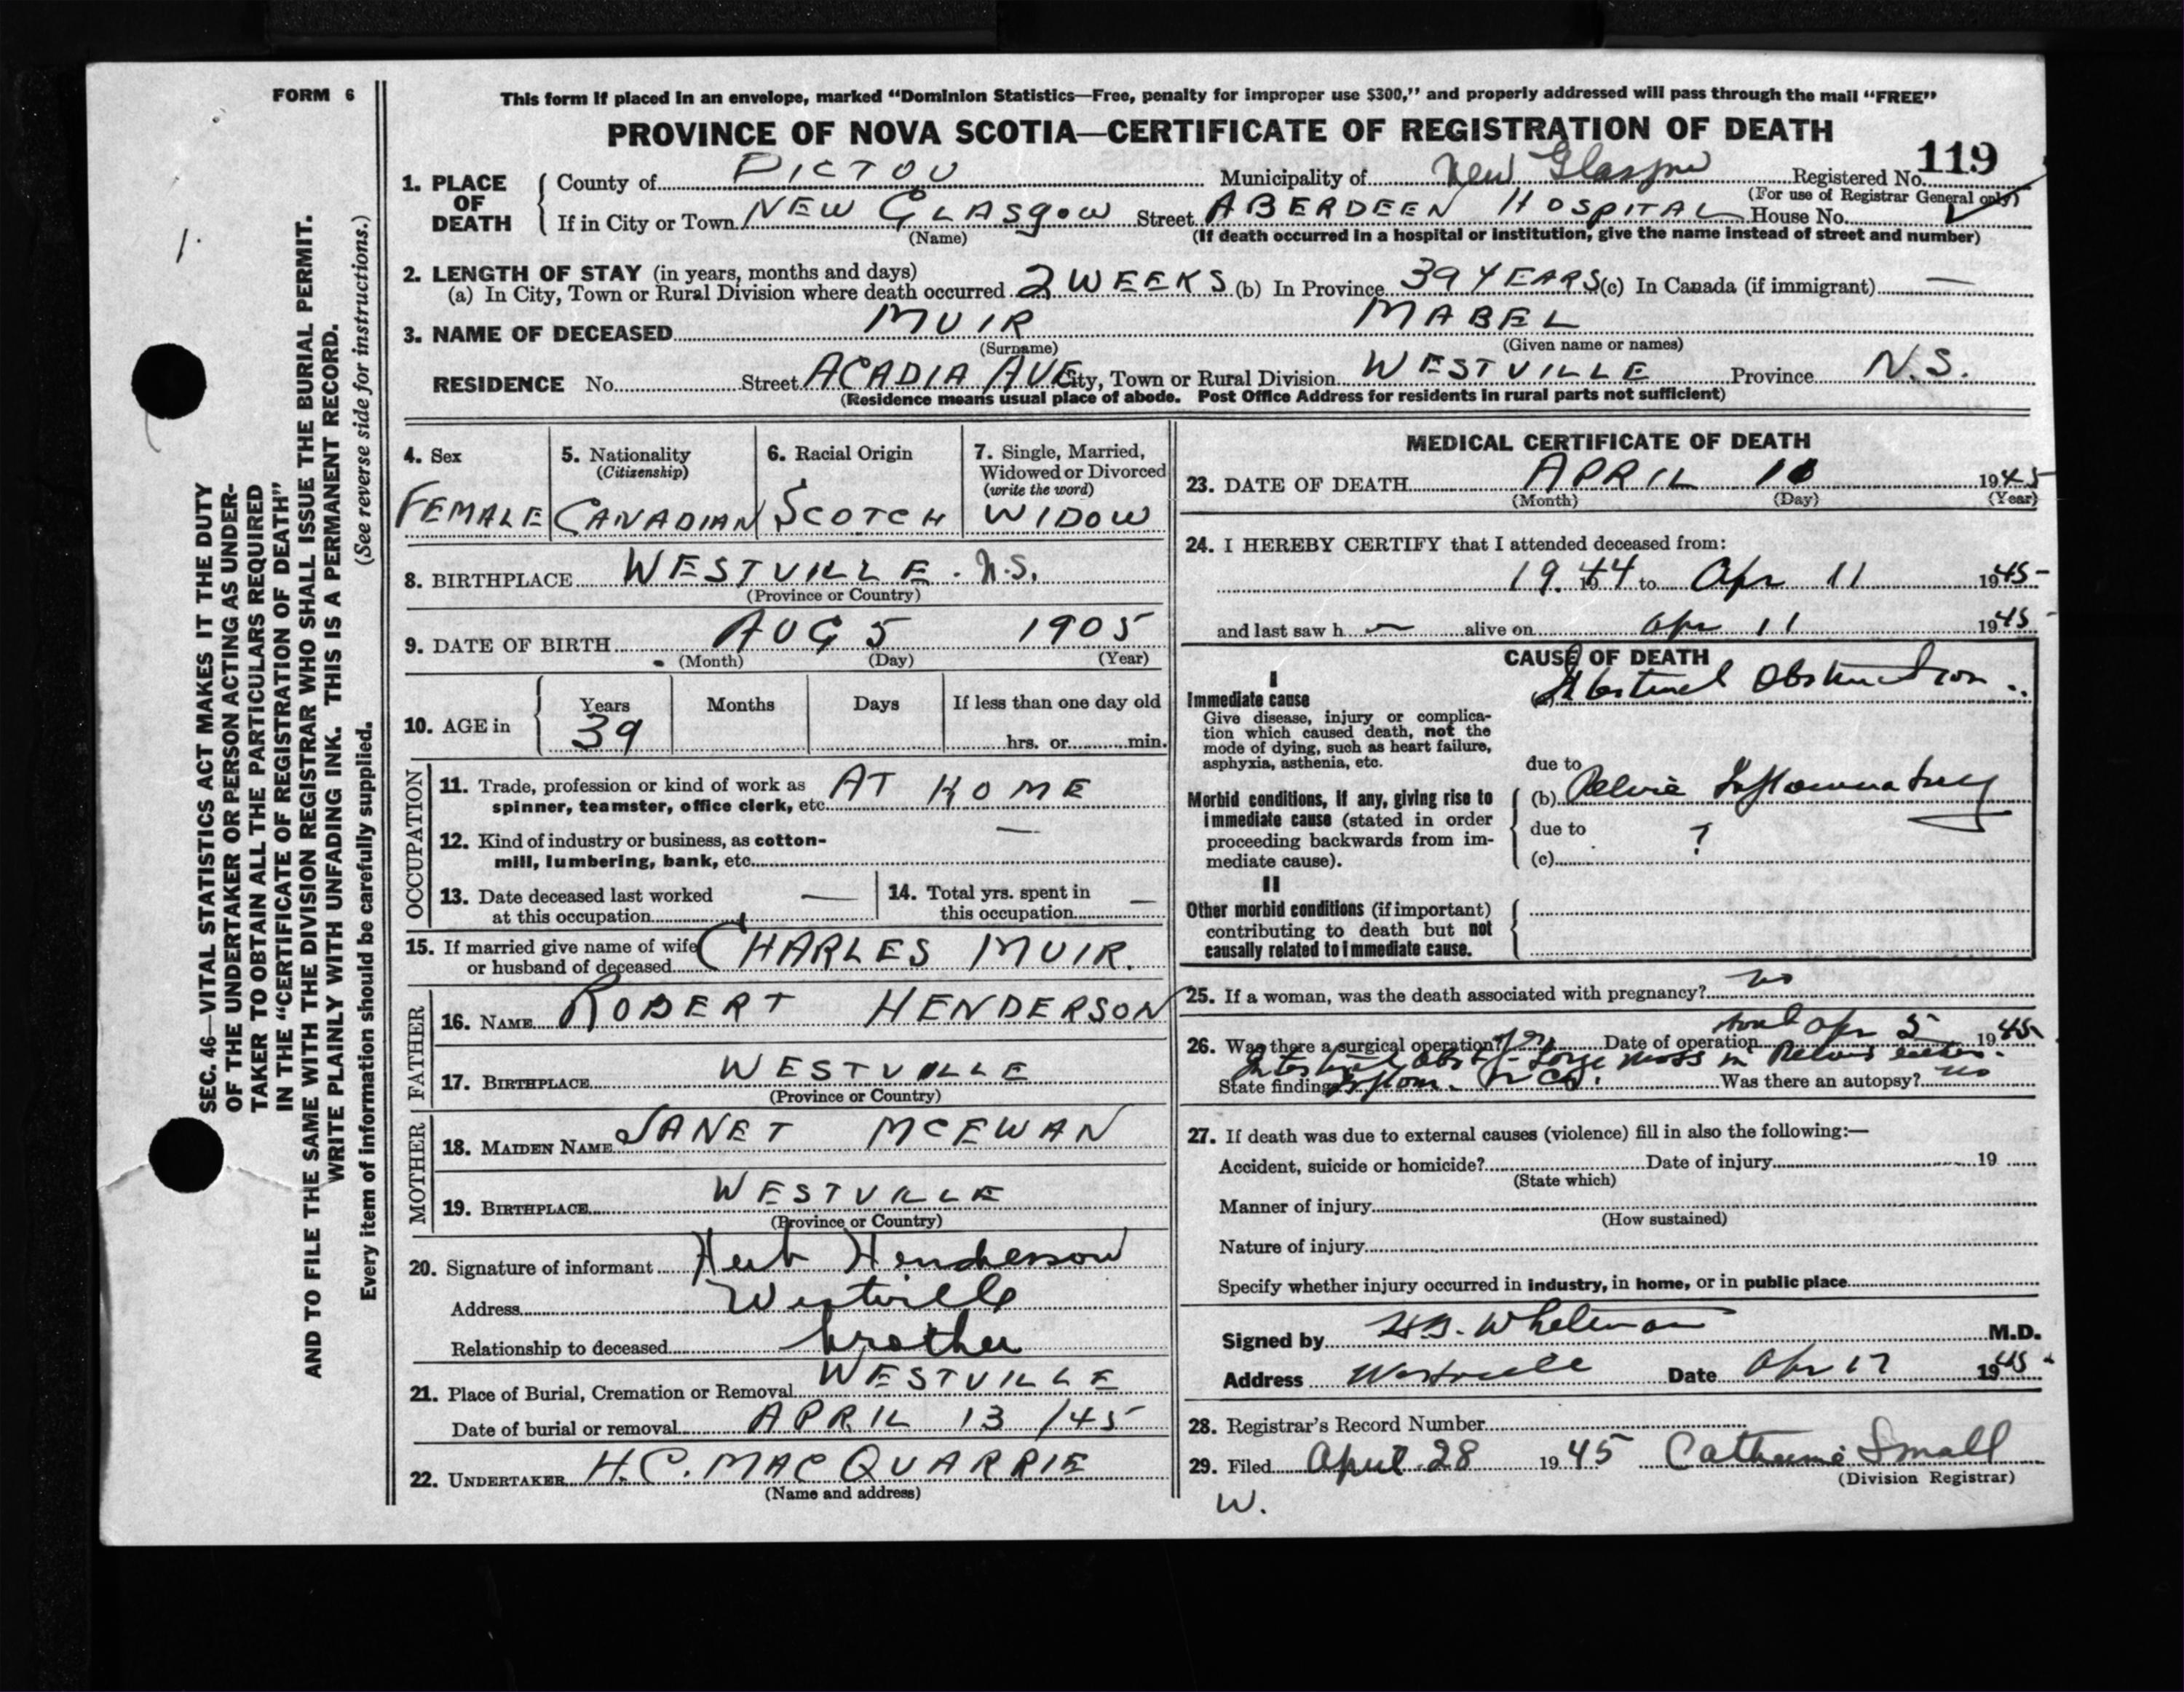 FORM 6
This form if placed in an envelope, marked “Dominion Statistics—Free, penalty for improper use $300,” and properly addressed will pass through the mail “FREE”
PROVINCE OF NOVA SCOTIA—CERTIFICATE OF REGISTRATION OF DEATH
119
1. PLACE OF DEATH
County of PICTOU Municipality of New Glasgow Registered No.
(For use of Registrar General only)
If in City or Town NEW GLASGOW Street ABERDEEN HOSPITAL House No.
(Name) (If death occurred in a hospital or institution, give the name instead of street and number)
2. LENGTH OF STAY (in years, months and days)
(a) In City, Town or Rural Division where death occurred 2 WEEKS (b) In Province 39 YEARS (c) In Canada (if immigrant) —
3. NAME OF DECEASED MUIR MABEL
(Surname) (Given name or names)
RESIDENCE No. Street ACADIA AVE City, Town or Rural Division WESTVILLE Province N.S.
(Residence means usual place of abode. Post Office Address for residents in rural parts not sufficient)
4. Sex
FEMALE
5. Nationality
(Citizenship)
CANADIAN
6. Racial Origin
SCOTCH
7. Single, Married,
Widowed or Divorced
(write the word)
WIDOW
8. BIRTHPLACE WESTVILLE. N.S.
(Province or Country)
9. DATE OF BIRTH AUG 5 1905
(Month) (Day) (Year)
10. AGE in
Years Months Days If less than one day old
39 hrs. or min.
OCCUPATION
11. Trade, profession or kind of work as
spinner, teamster, office clerk, etc. AT HOME
12. Kind of industry or business, as cotton-
mill, lumbering, bank, etc. —
13. Date deceased last worked
at this occupation —
14. Total yrs. spent in
this occupation —
15. If married give name of wife
or husband of deceased CHARLES MUIR.
FATHER
16. NAME ROBERT HENDERSON
17. BIRTHPLACE WESTVILLE
(Province or Country)
MOTHER
18. MAIDEN NAME JANET MCEWAN
19. BIRTHPLACE WESTVILLE
(Province or Country)
20. Signature of informant Herb Henderson
Address Westville
Relationship to deceased brother
21. Place of Burial, Cremation or Removal WESTVILLE
Date of burial or removal APRIL 13 /45
22. UNDERTAKER H.C. MACQUARRIE
(Name and address)
MEDICAL CERTIFICATE OF DEATH
23. DATE OF DEATH APRIL 1945
(Month) (Day) (Year)
24. I HEREBY CERTIFY that I attended deceased from:
19.44 to Apr 11 1945
and last saw h alive on Apr 11 1945
CAUSE OF DEATH
I
Immediate cause
Give disease, injury or complica-
tion which caused death, not the
mode of dying, such as heart failure,
asphyxia, asthenia, etc.
Intestinal Obstruction
due to
Morbid conditions, if any, giving rise to
immediate cause (stated in order
proceeding backwards from im-
mediate cause).
(b) Pelvic Inflammatory
due to
(c) ?
II
Other morbid conditions (if important)
contributing to death but not
causally related to immediate cause.
25. If a woman, was the death associated with pregnancy? no
26. Was there a surgical operation? yes Date of operation about Apr 5 1945
Intestinal Obst - Large mass in Pelvis either
State findings Inflam. or Ca. Was there an autopsy? no
27. If death was due to external causes (violence) fill in also the following:—
Accident, suicide or homicide? Date of injury 19
(State which)
Manner of injury
(How sustained)
Nature of injury
Specify whether injury occurred in industry, in home, or in public place
Signed by Whitman M.D.
Address Westville Date Apr 17 1945
28. Registrar's Record Number
29. Filed April 28 1945 Catherine Small
(Division Registrar)
W.
SEC. 46—VITAL STATISTICS ACT MAKES IT THE DUTY
OF THE UNDERTAKER OR PERSON ACTING AS UNDER-
TAKER TO OBTAIN ALL THE PARTICULARS REQUIRED
IN THE “CERTIFICATE OF REGISTRATION OF DEATH”
AND TO FILE THE SAME WITH THE DIVISION REGISTRAR WHO SHALL ISSUE THE BURIAL PERMIT.
WRITE PLAINLY WITH UNFADING INK. THIS IS A PERMANENT RECORD.
Every item of information should be carefully supplied. (See reverse side for instructions.)
1.